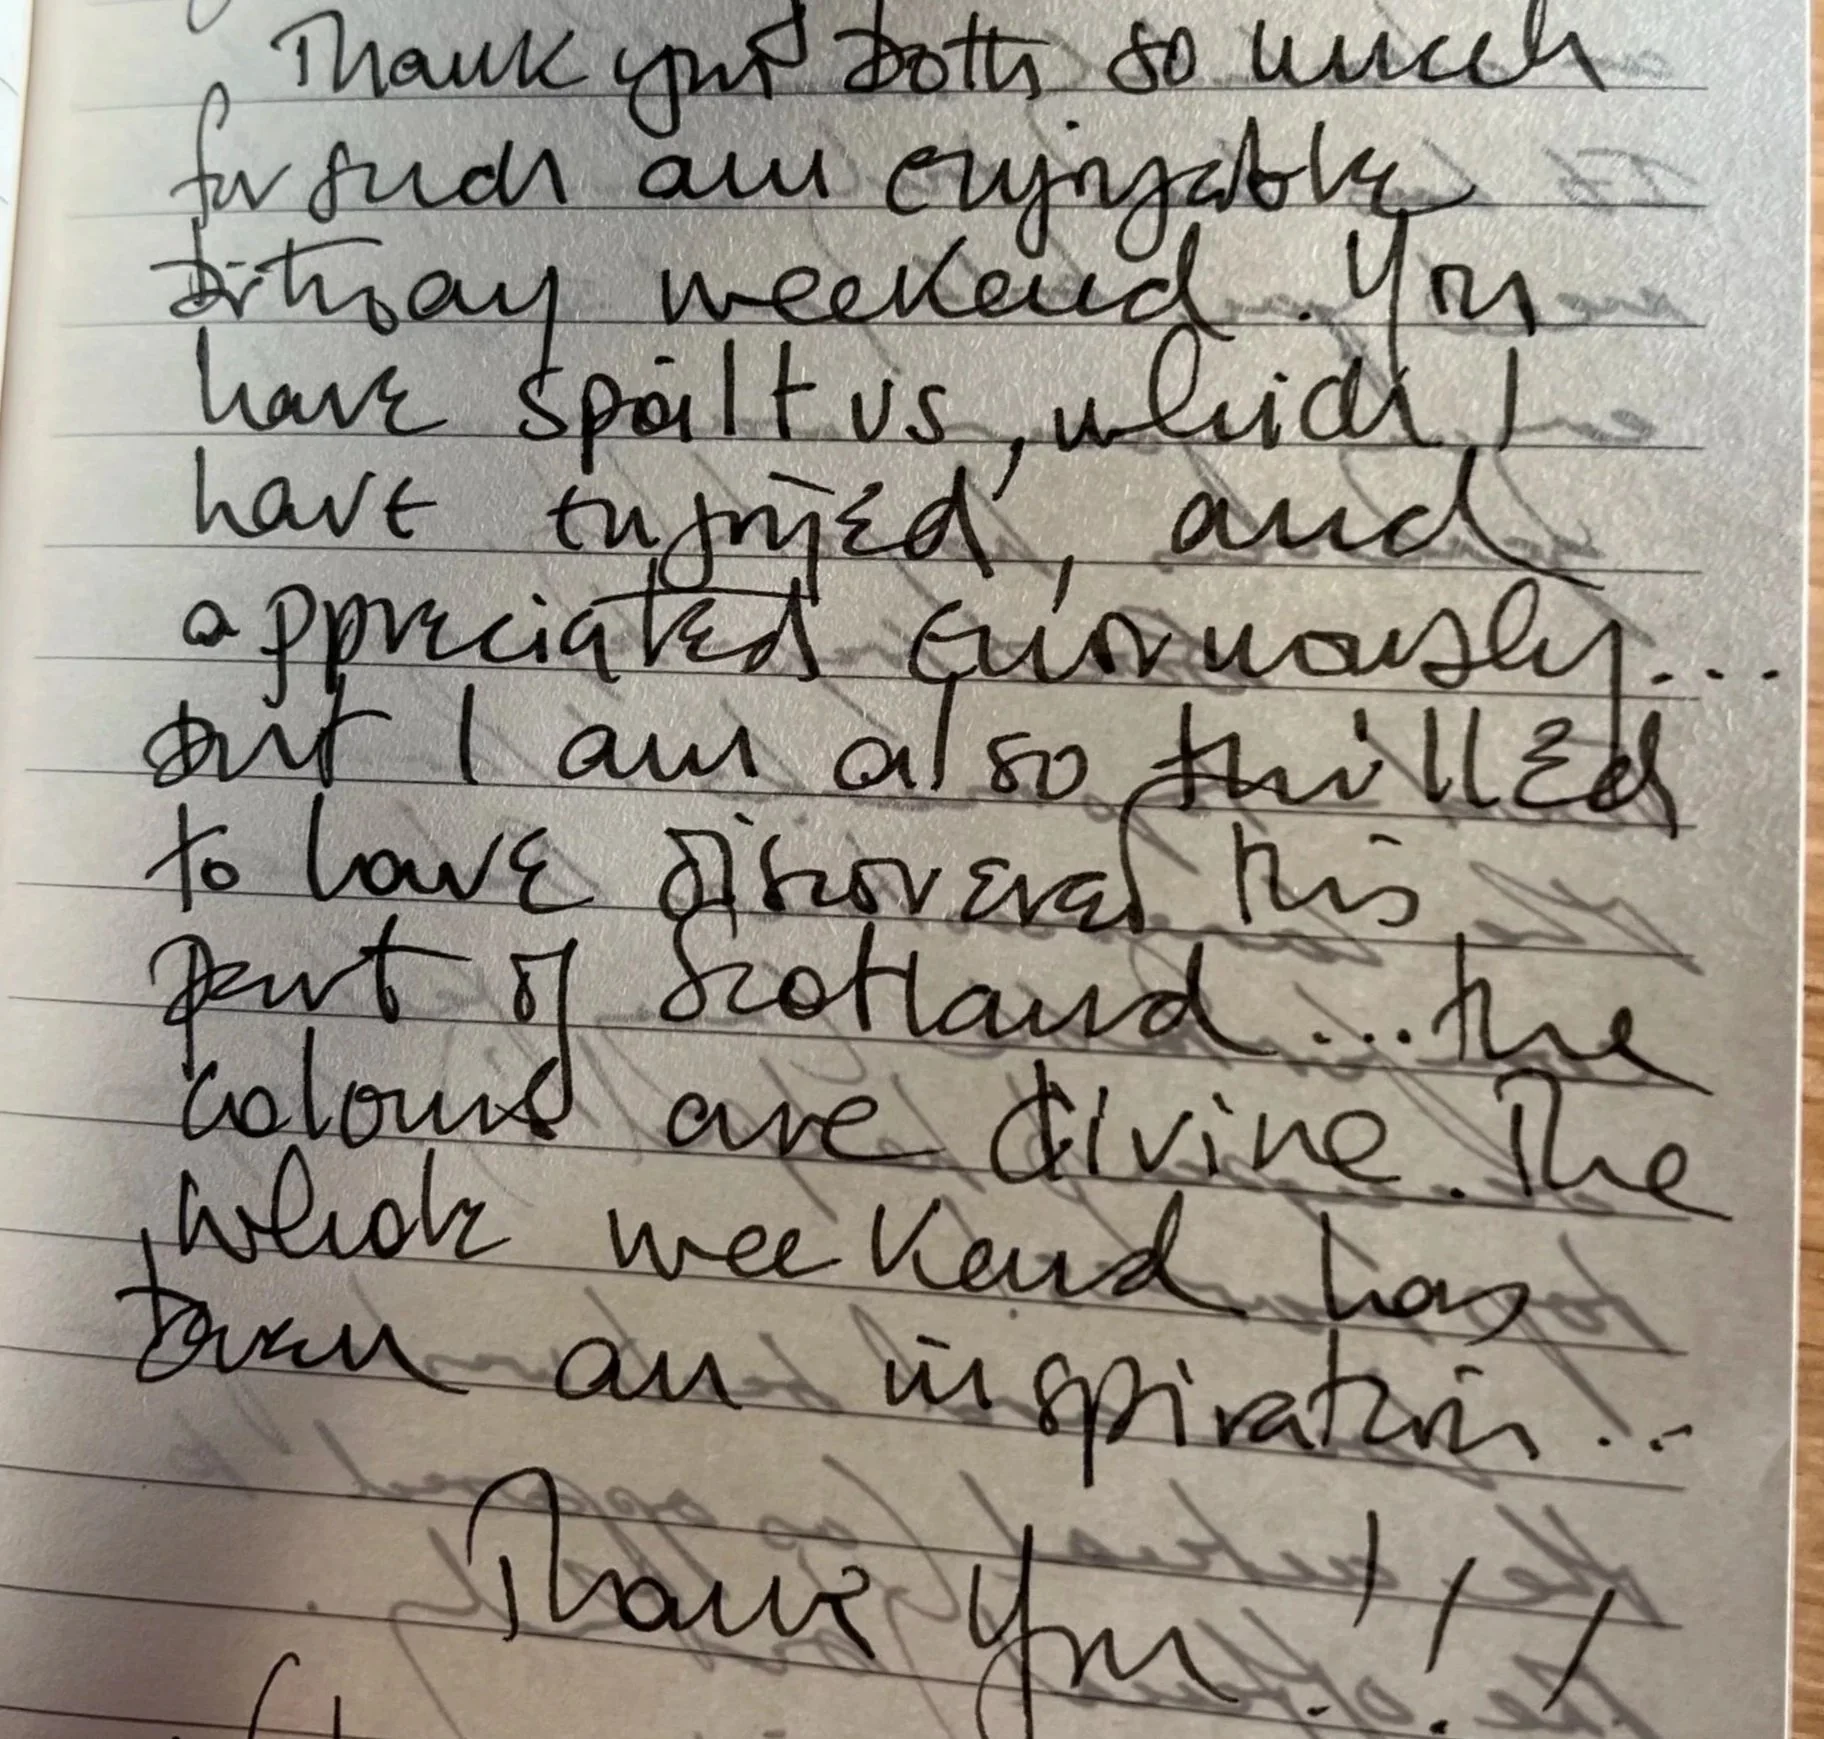 Thank you both so much
for such an enjoyable
birthday weekend. You
have spoilt us, which I
have enjoyed, and
appreciated enormously...
but I am also thrilled
to have discovered this
part of Scotland ... the
colours are divine. The
whole weekend has
been an inspiration...
Thank you!!!